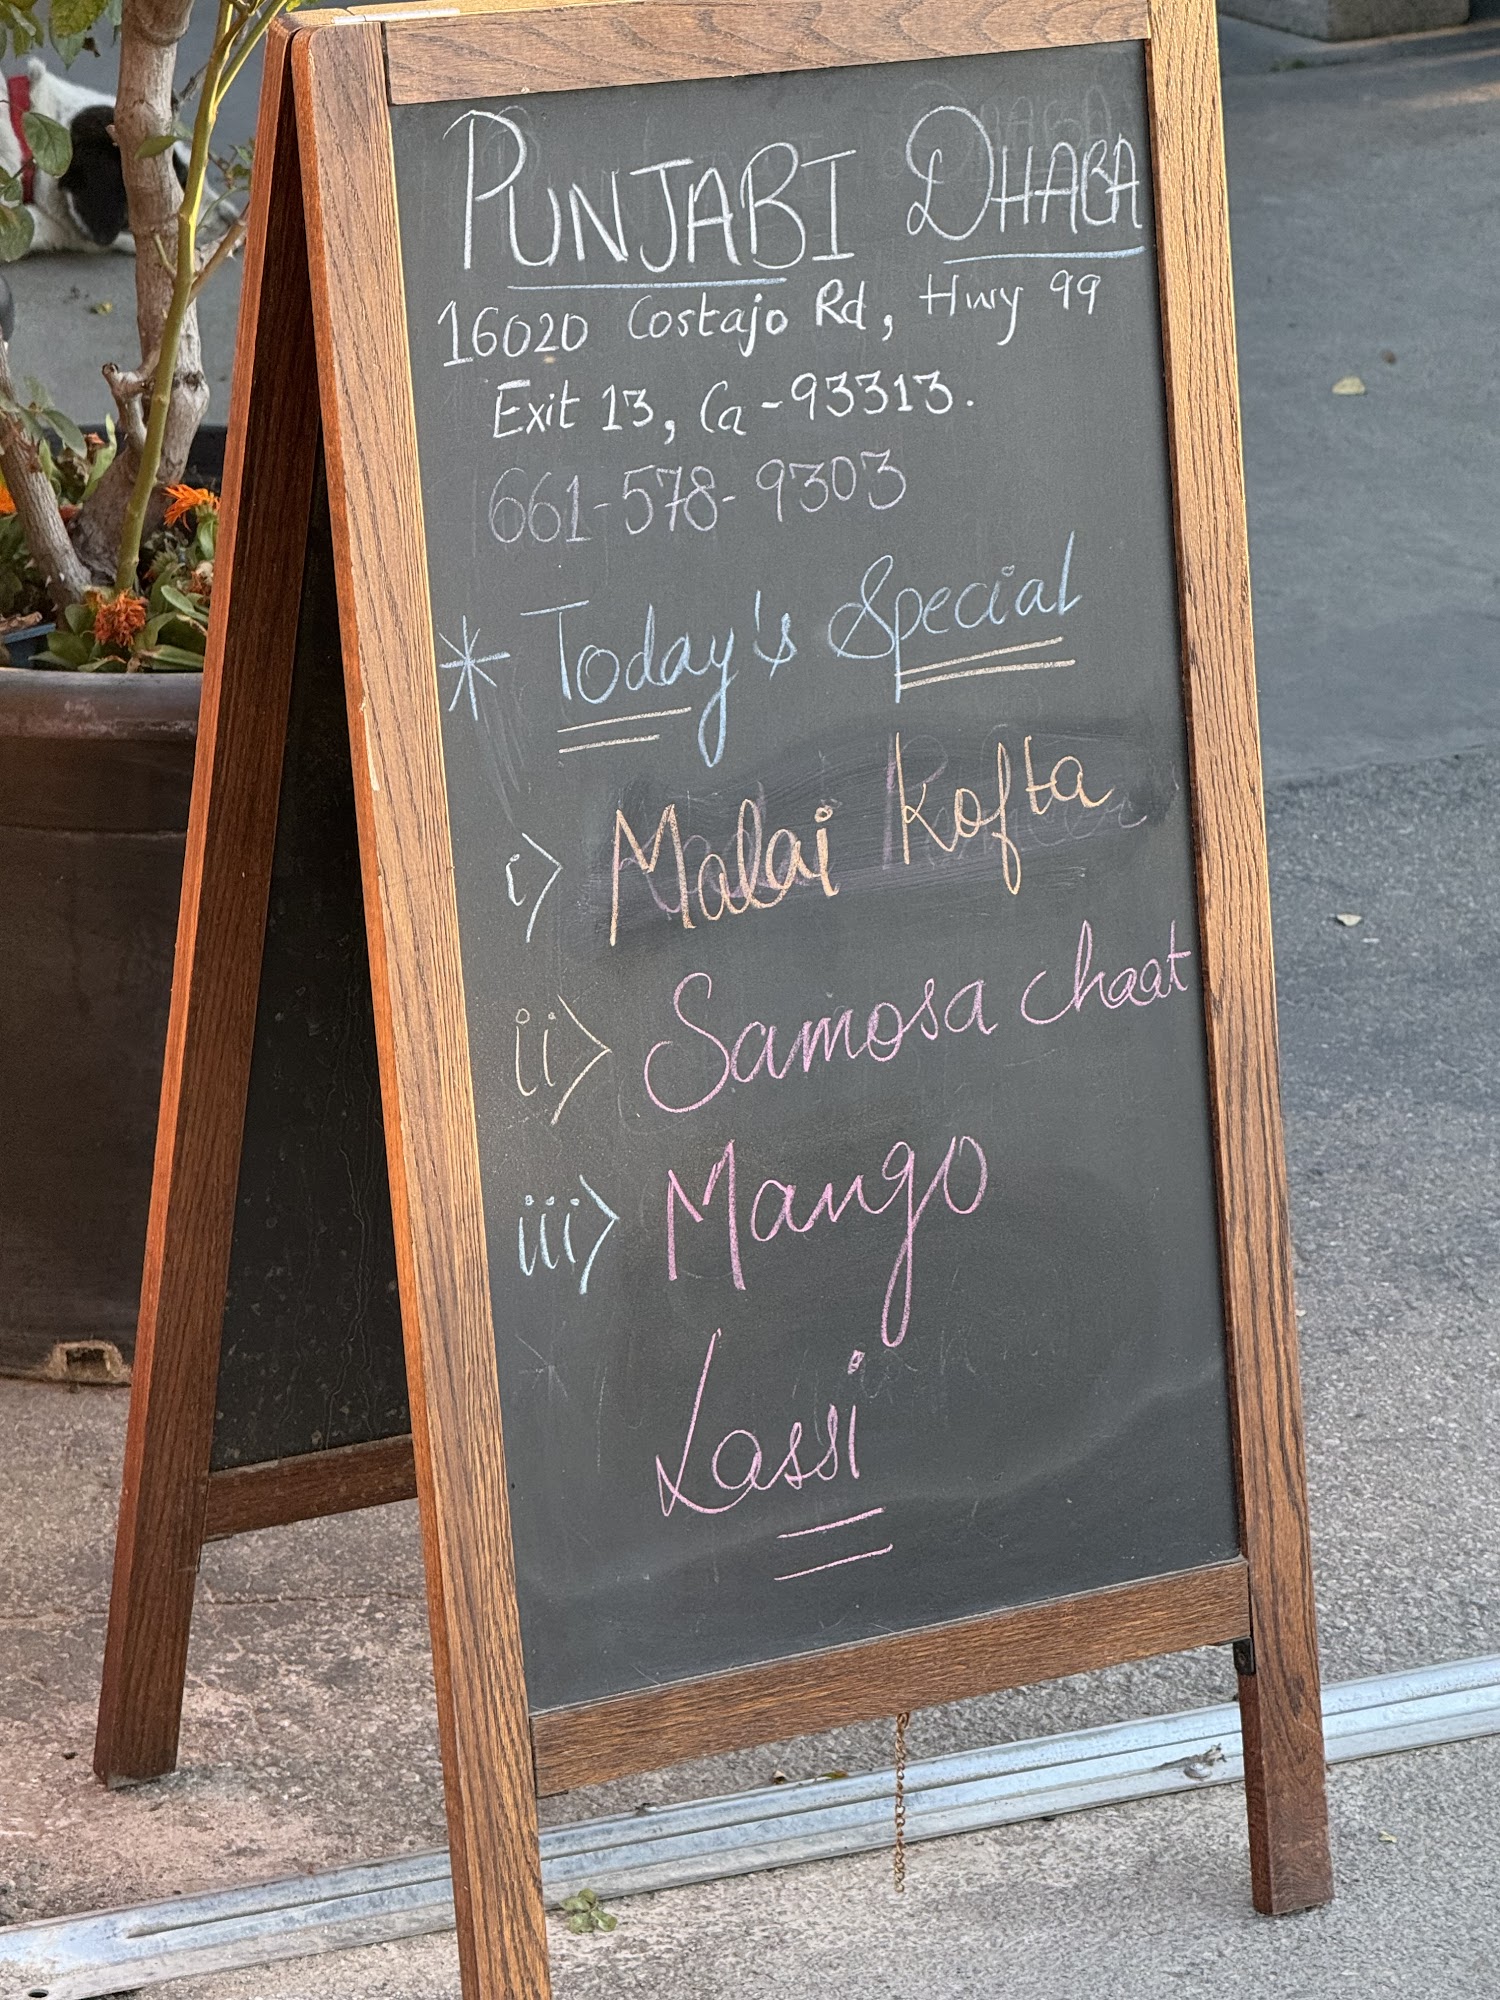 PUNJABI DHABA
16020 Costajo Rd, Hwy 99
Exit 13, Ca-93313.
661-578-9303
* Today's Special
i> Malai Kofta
ii> Samosa chaat
iii> Mango
Lassi